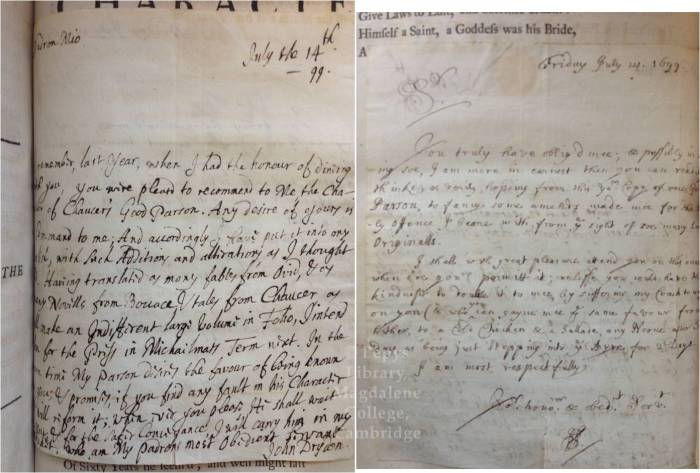 CHARACTE
Padron Mio
July the 14th
99.
remember, last Year, when I had the honour of dineing
you, you were pleasd to recommend to Me the Cha-
of Chaucers Good Parson. Any desire of yours is
command to me; And accordingly I have put it into my
with such Additions and alterations as I thought
Having translated as many fables from Ovid, & as
Novills from Boccace & tales from Chaucer, as
make an Indifferent large volume in Folio, I intend
for the Press in Michaelmass Term next. In the
time My Parson desires the favour of being known
& promises, if you find any fault in his Character
reform it; when ever you please. He shall wait
for the safer Conveyance I will carry him in my
who am My Padrons most Obedient servant
John Dryden.
THE
Of Sixty Years he seem'd; and well might last
Give Laws to
Himself a Saint, a Goddess was his Bride,
A
Friday July 14. 1699
Sr.
You truly have oblig'd mee; & possibly in
saying soe, I am more in earnest then you can readily
thinke; as verily hopeing from this yor Copy of one
Parson, to fancy some amends made mee for the
offence I beare with from ye sight of soe many
Originalls.
I shall with great pleasure attend you on this
when ere you'l permitt it; unless you would have the
kindness to double it to mee, by suffering my Coach to
on you (& who you can gayne mee ye same favour from
hither, to a Cold Chicken & a Sallade, any Noone after
as being just stepping into ye Ayre for a Days
I am most respectfully
yor honord. & obedt. Servt.
Pepys
Library,
Magdalene
College,
Cambridge